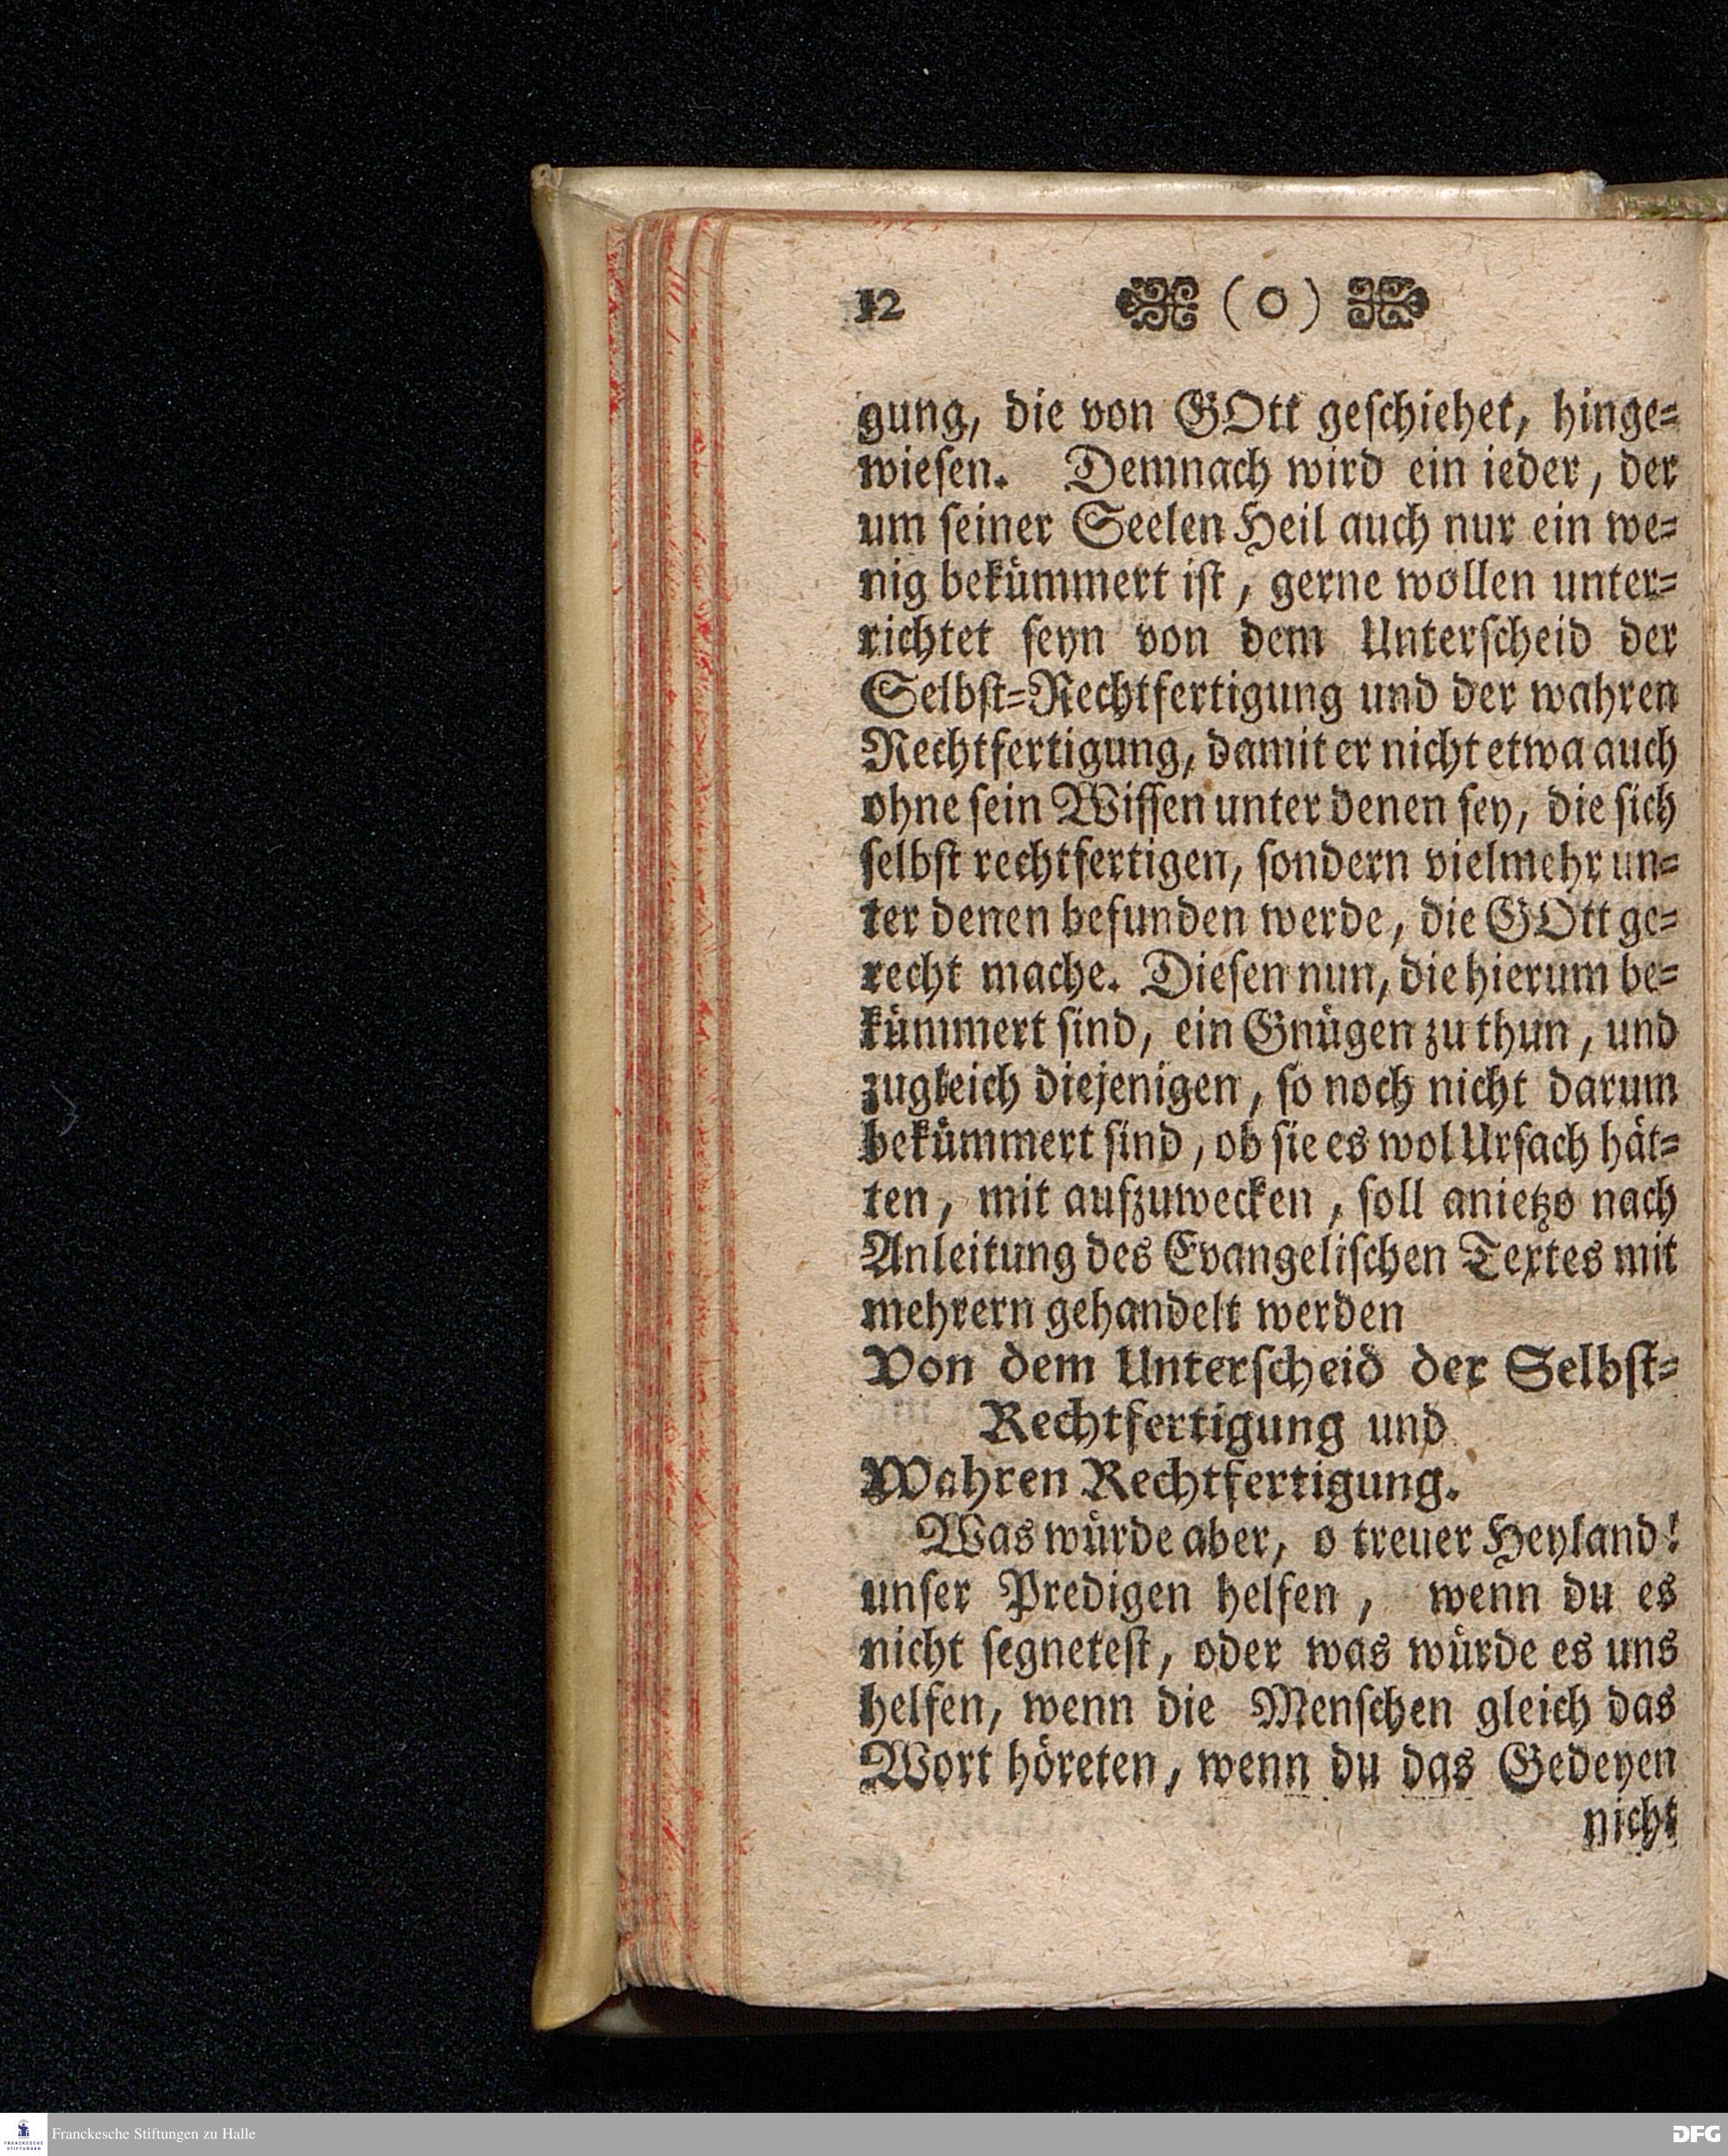 12 (O)
gung, die von GOtt geſchiehet, hinge⸗
wieſen. Demnach wird ein ieder, der
um ſeiner Seelen Heil auch nur ein we⸗
nig bekümmert iſt, gerne wollen unter⸗
richtet ſeyn von dem Unterſcheid der
Selbſt⸗Rechtfertigung und der wahren
Rechtfertigung, damit er nicht etwa auch
ohne ſein Wiſſen unter denen ſey, die ſich
ſelbſt rechtfertigen, ſondern vielmehr un⸗
ter denen befunden werde, die GOtt ge⸗
recht mache. Dieſen nun, die hierum be⸗
kümmert ſind, ein Gnügen zu thun, und
zugleich diejenigen, ſo noch nicht darum
bekümmert ſind, ob ſie es wol Urſach hät⸗
ten, mit aufzuwecken, ſoll anietzo nach
Anleitung des Evangeliſchen Textes mit
mehrern gehandelt werden
Von dem Unterſcheid der Selbſt⸗
Rechtfertigung und
Wahren Rechtfertigung.
Was würde aber, o treuer Heyland!
unſer Predigen helfen, wenn du es
nicht ſegneteſt, oder was würde es uns
helfen, wenn die Menſchen gleich das
Wort höreten, wenn du das Gedeyen
nicht
FRANCKESCHE STIFTUNGEN
Franckesche Stiftungen zu Halle
DFG